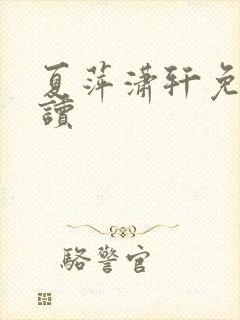 夏萍潇轩免
讀
駱警官